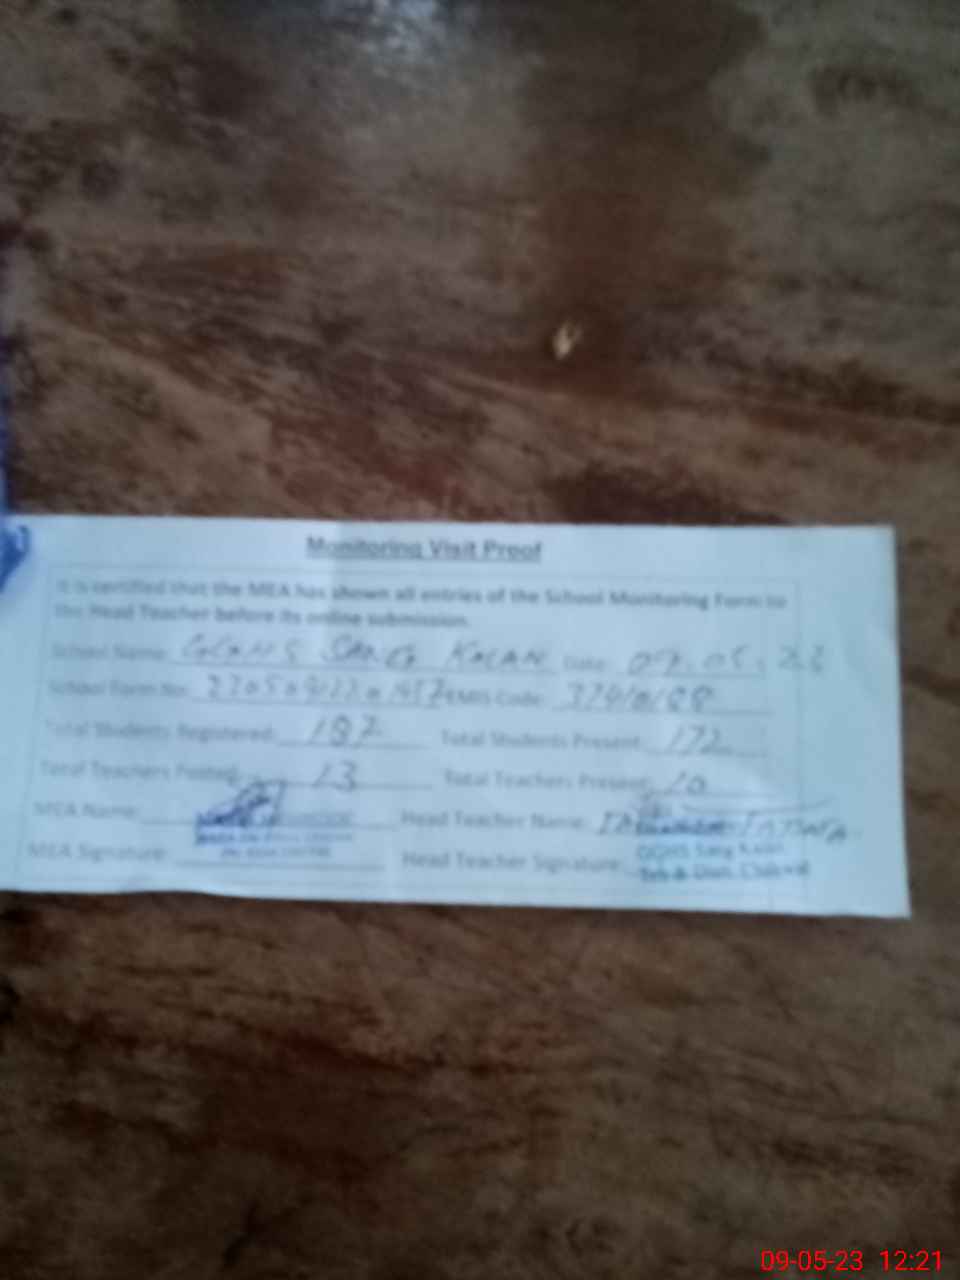 Monitoring Visit Proof
It is certified that the MEA has shown all entries of the School Monitoring Form to
the Head Teacher before its online submission.
School Name: GGHS SANG KALAN Date: 09.05.23
School Form No: EMIS Code:
Total Students Registered: 187 Total Students Present: 172
Total Teachers Posted: 13 Total Teachers Present: 10
MEA Name: Head Teacher Name:
MEA Signature: Head Teacher Signature:
GGHS Sang Kalan
Teh & Distt. Chakwal
09-05-23 12:21